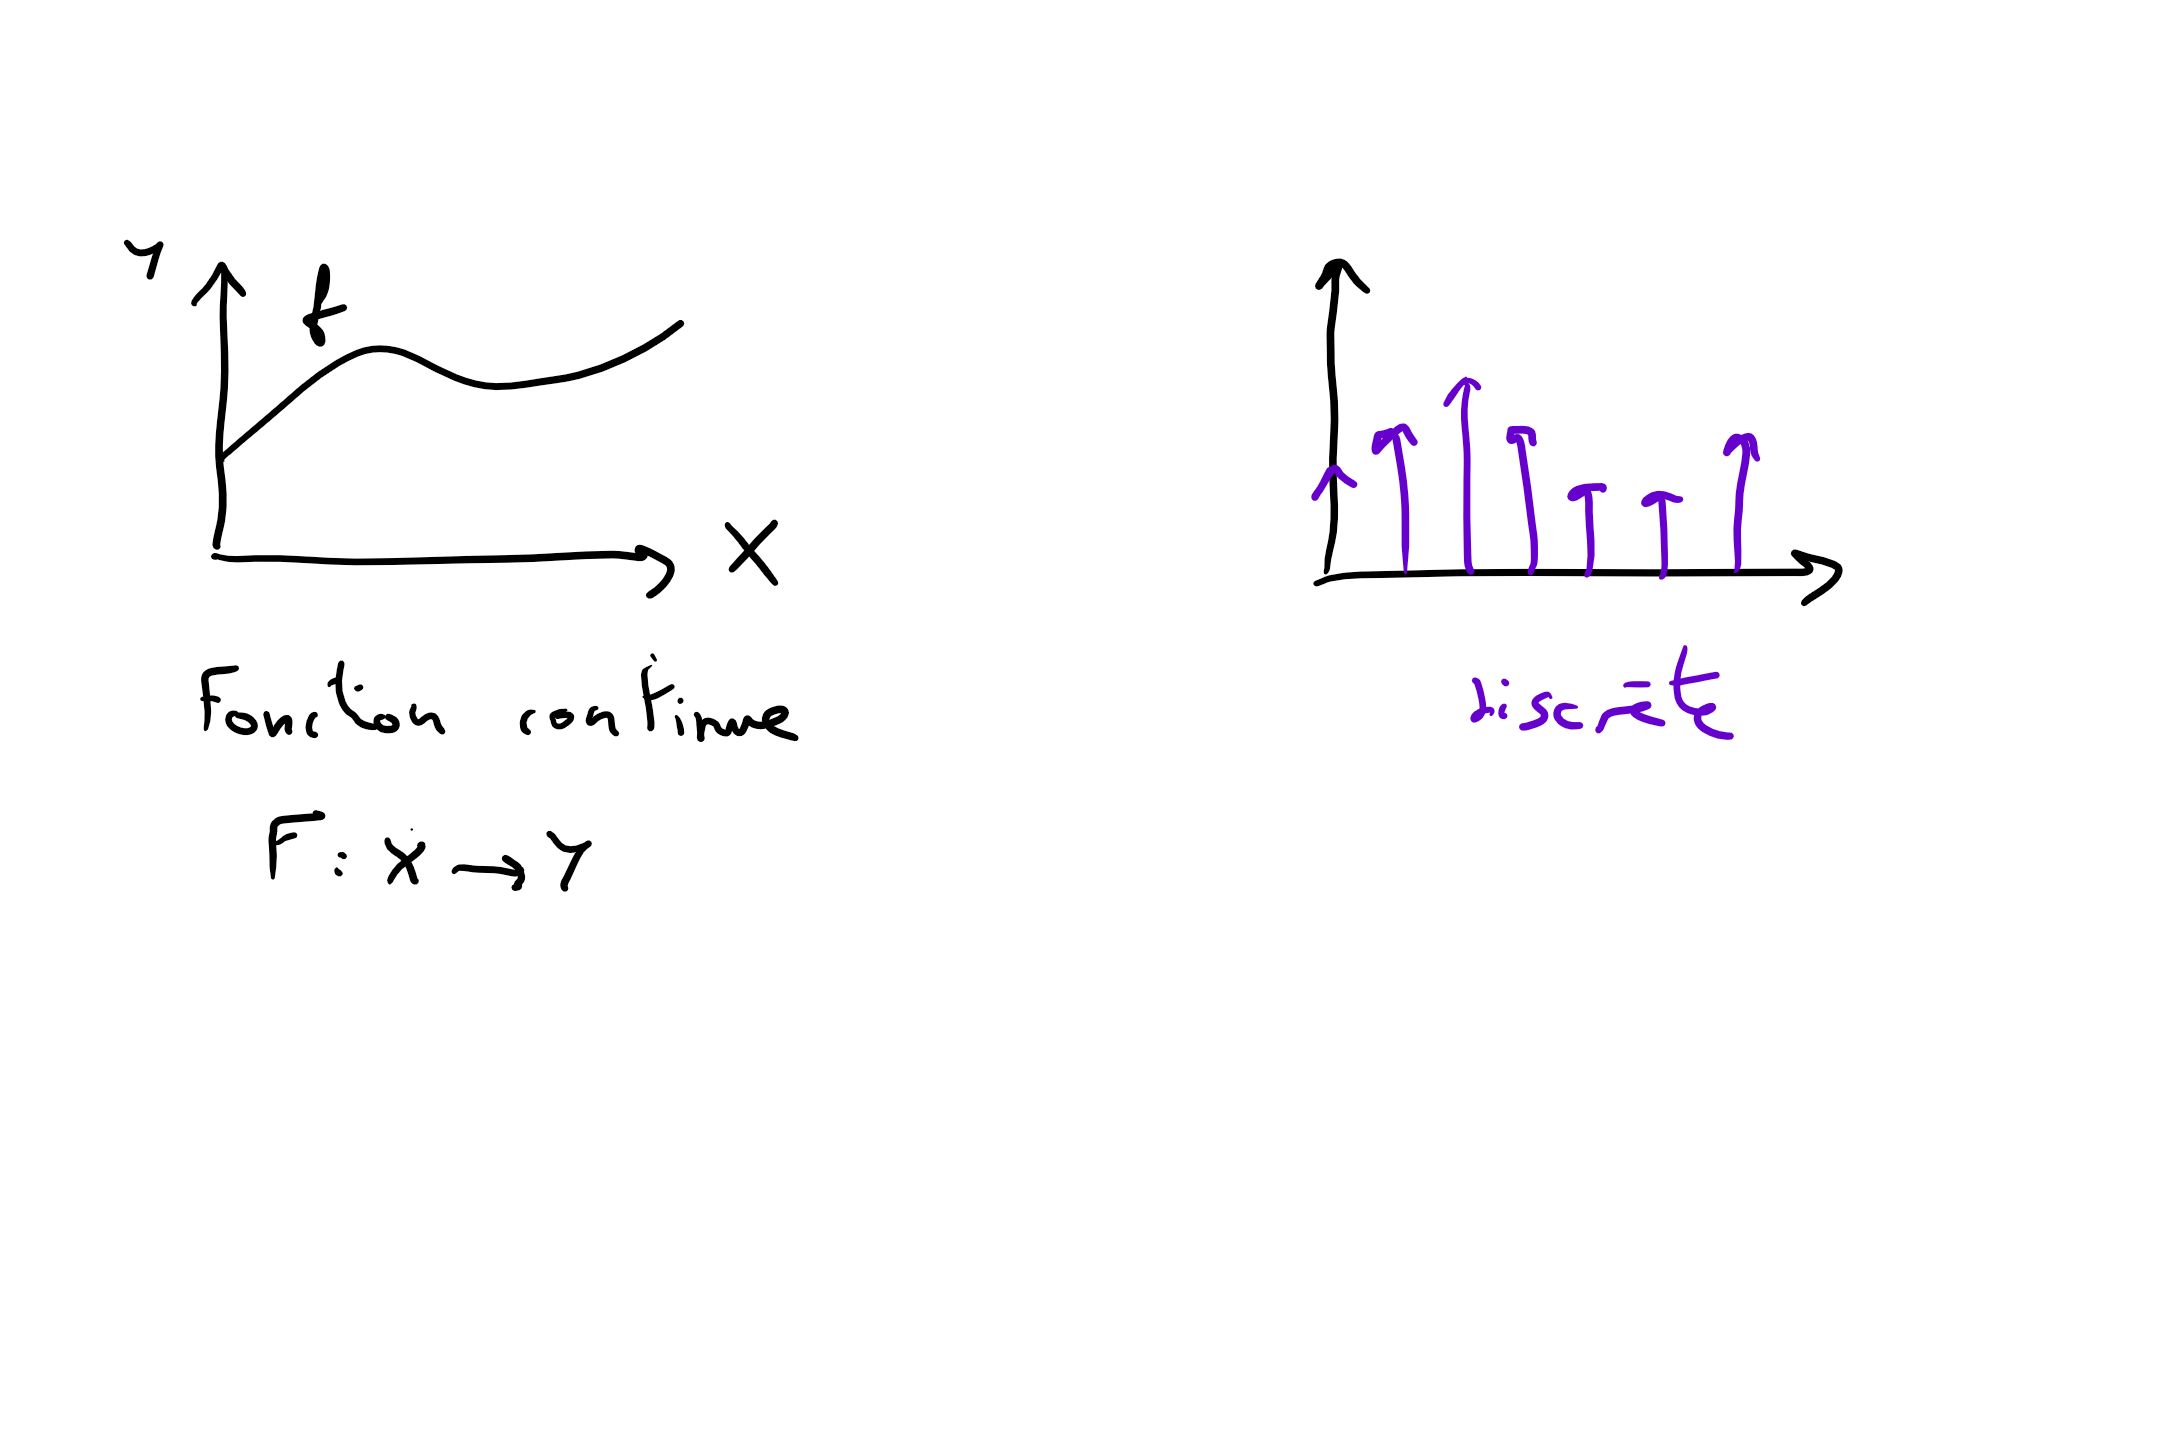 Y
f
X
Fonction continue
F : X → Y
discrète